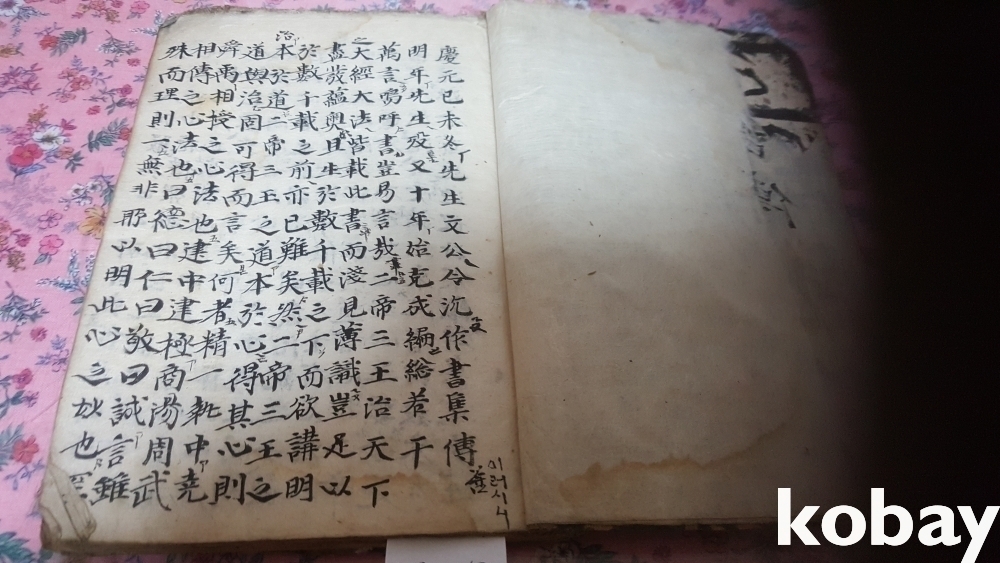 慶元已未冬先生文公令沉作書集傳
이러시니
明年先生歿又十年始克成編總若干
萬言嗚呼書豈易言哉二帝三王治天下
之大經大法皆載此書而淺見薄識豈足以
盡發蘊奧且生於數千載之下而欲講明
於數千載之前亦已難矣然二帝三王之
治本於道二帝三王之道本於心得其心則
道與治固可得而言矣何者精一執中堯
舜禹相授之心法也建中建極商湯周武
相傳之心法也曰德曰仁曰敬曰誠言雖
殊而理則一無非所以明此心之妙也至
kobay